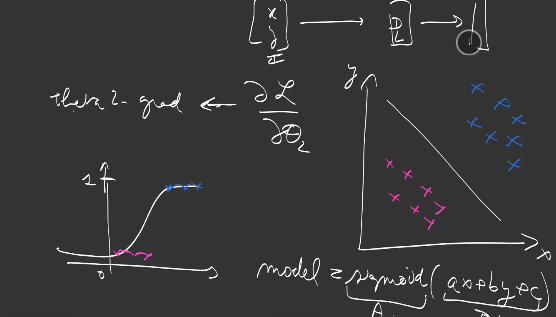 x
y
theta2-grad ← ∂L
∂θ₂
y
1
0
x
model = sigmoid(ax+by+c)
A